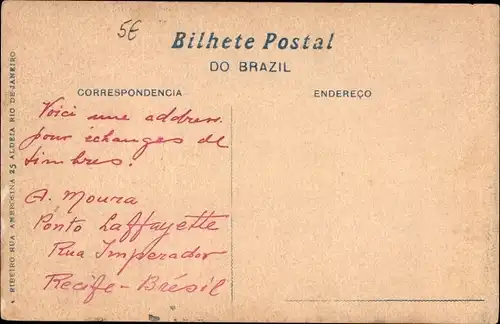 5€
Bilhete Postal
DO BRAZIL
CORRESPONDENCIA
ENDEREÇO
Voici une address
pour échanges de
timbres.
A. Moura
Ponto Laffayette
Rua Imperador
Recife - Brésil
RIBEIRO RUA AMBROSINA 25 ALDEIA RIO DE JANEIRO